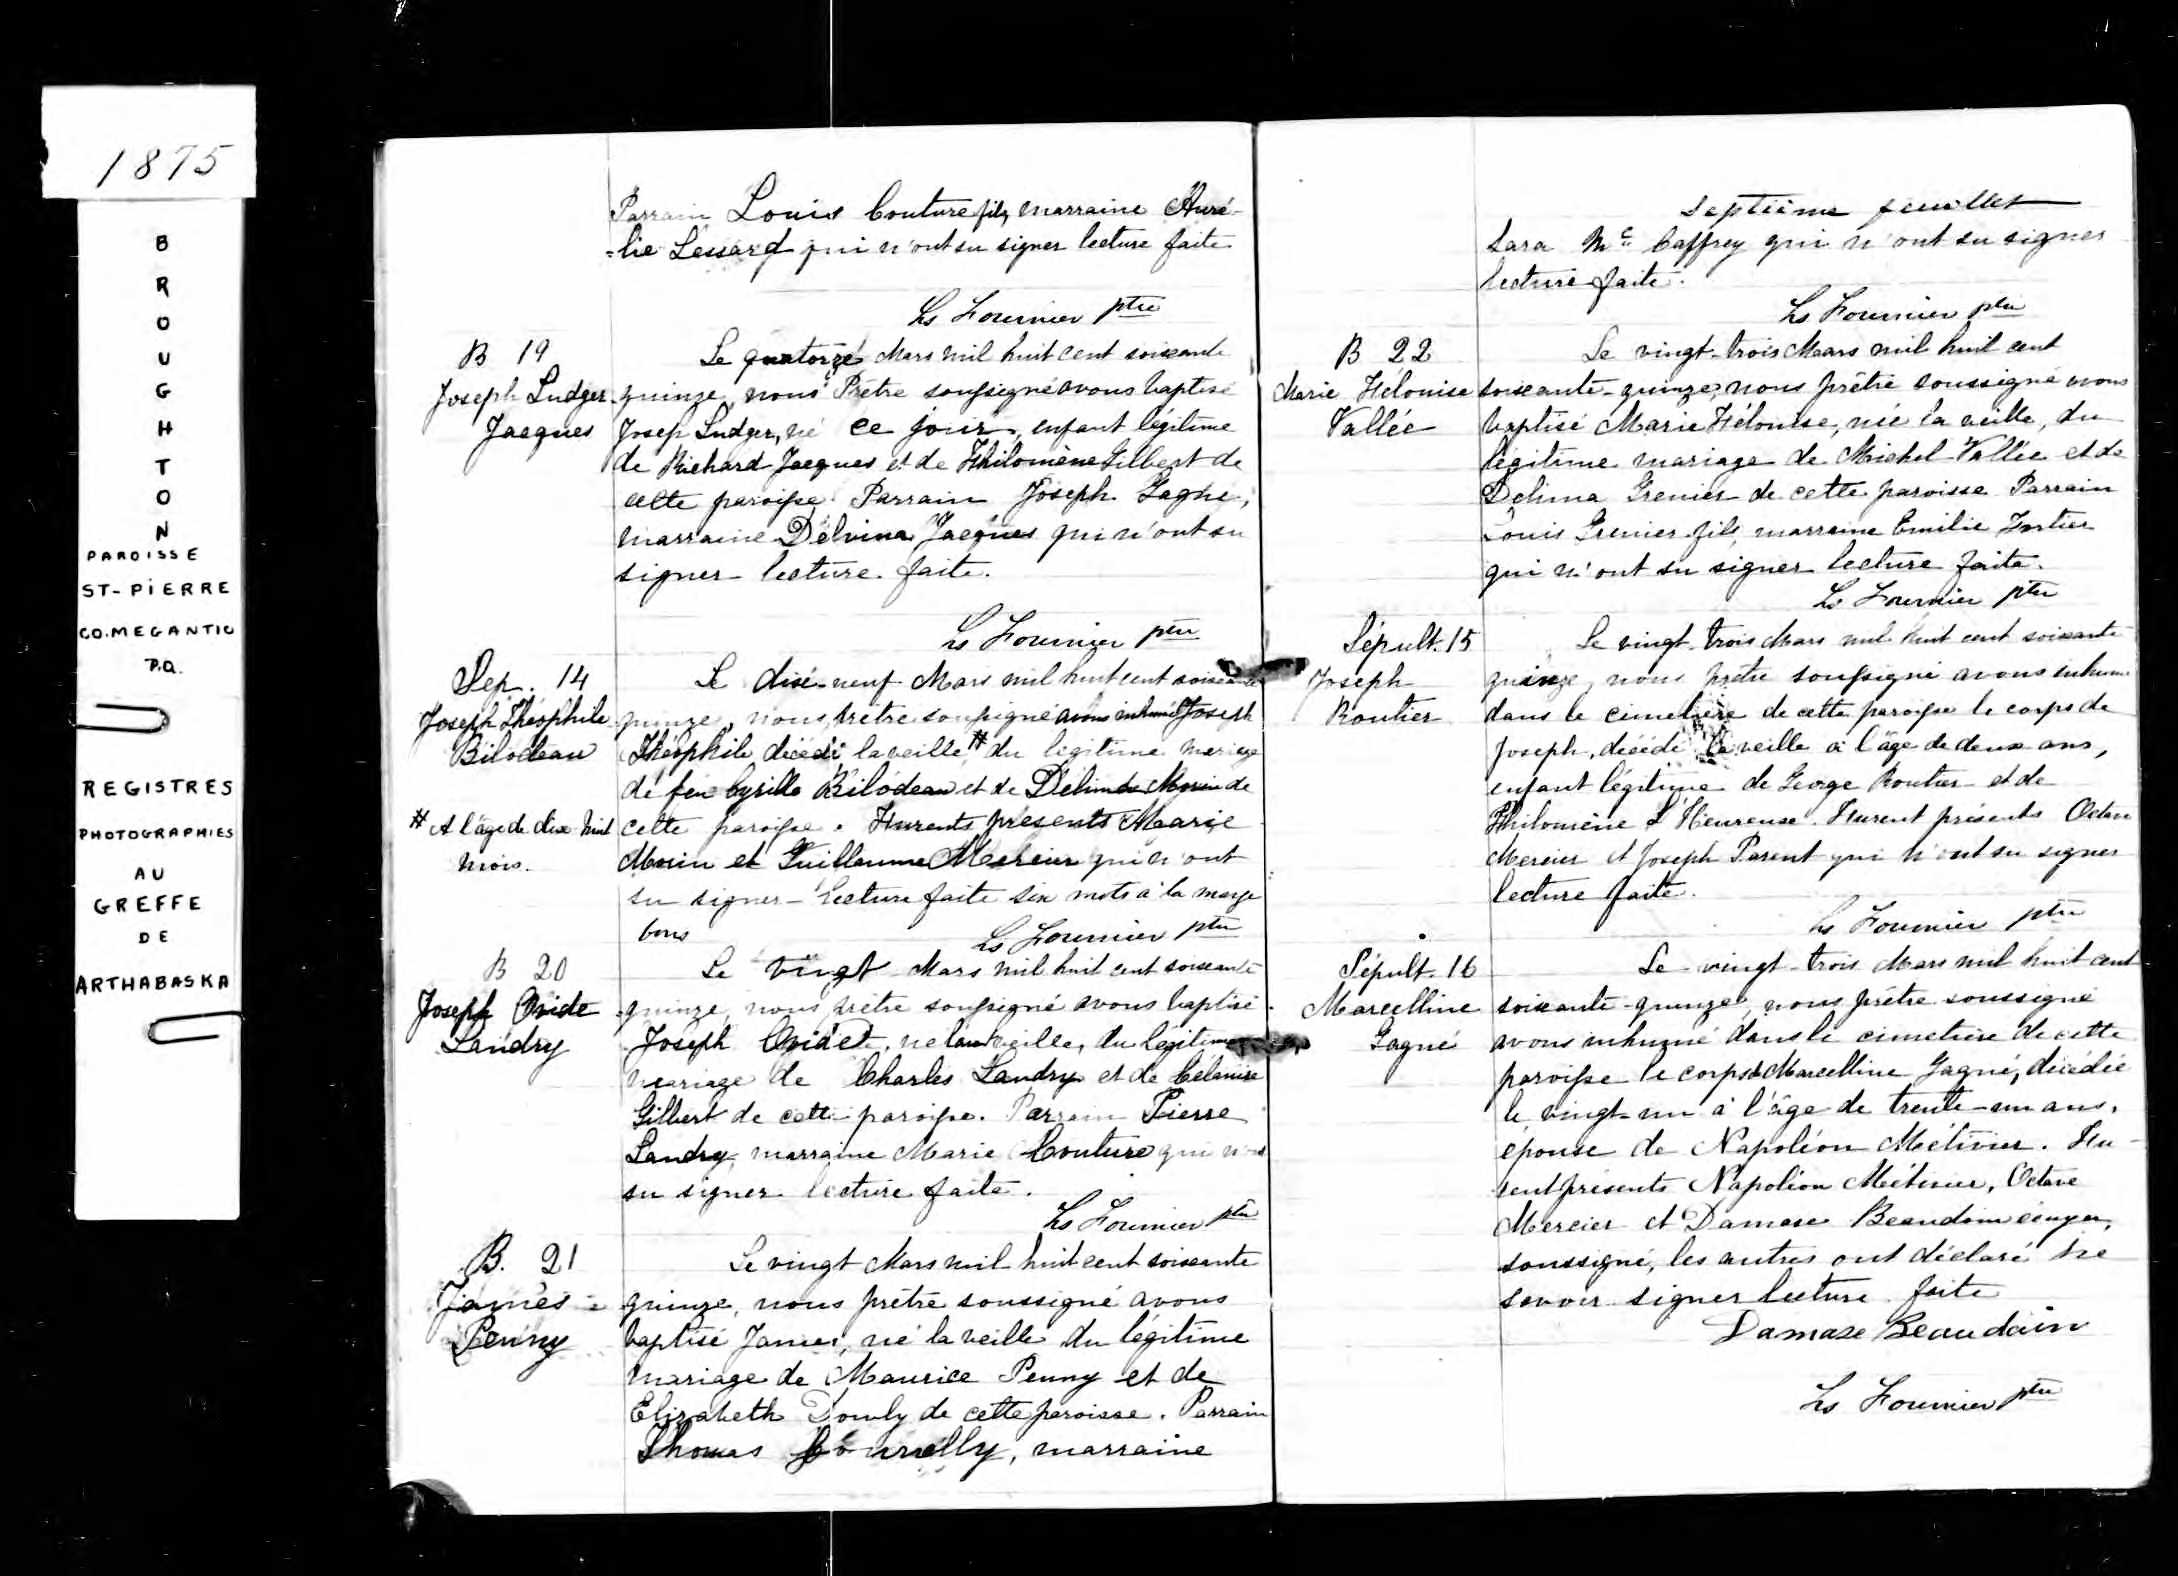 1875
BROUGHTON
PAROISSE
ST-PIERRE
CO. MEGANTIC
P.Q.
REGISTRES
PHOTOGRAPHIES
AU
GREFFE
DE
ARTHABASKA
Parrain Louis Couture fils, marraine Auré-
-lie Lessard qui n'ont su signer lecture faite
Ls Fournier ptre
B 19
Joseph Ludger
Jacques
Le quatorze Mars mil huit cent soixante
quinze, nous Prêtre soussigné avons baptisé
Josep Ludger, né ce jour, enfant légitime
de Richard Jacques et de Philomène Gilbert de
cette paroisse. Parrain Joseph Gagné,
marraine Délvina Jacques qui n'ont su
signer lecture faite.
Ls Fournier ptre
Sep. 14
Joseph Théophile
Bilodeau
# A l'âge de dix huit
mois.
Le dixe-neuf Mars mil huit cent soixante
quinze, nous prêtre soussigné avons inhumé Joseph
Théophile décédé la veille # du légitime mariage
de feu Cyrille Bilodeau et de Délima Morin de
cette paroisse. Furents présents Marie
Morin et Guillaume Mercier qui n'ont
su signer - lecture faite six mots à la marge
bons
Ls Fournier ptre
B 20
Joseph Ovide
Landry
Le vingt Mars mil huit cent soixante
quinze, nous prêtre soussigné avons baptisé
Joseph Ovide, né la veille, du légitime
mariage de Charles Landry et de Célanise
Gilbert de cette paroisse. Parrain Pierre
Landry, marraine Marie Couture qui n'ont
su signer lecture faite.
Ls Fournier ptre
B. 21
James
Penny
Le vingt Mars mil huit cent soixante
quinze, nous prêtre soussigné avons
baptisé James, né la veille du légitime
mariage de Maurice Penny et de
Elizabeth Dowly de cette paroisse. Parrain
Thomas Connelly, marraine
Septième feuillet
Sara Mc Caffrey qui n'ont su signer
lecture faite.
Ls Fournier ptre
B 22
Marie Hélouise
Vallée
Le vingt-trois Mars mil huit cent
soixante-quinze, nous prêtre soussigné avons
baptisé Marie Hélouise, née la veille, du
légitime mariage de Michel Vallée et de
Delima Grenier de cette paroisse Parrain
Louis Grenier fils, marraine Emilie
qui n'ont su signer lecture faite.
Ls Fournier ptre
Sépult. 15
Joseph
Routier
Le vingt-trois Mars mil huit cent soixante
quinze, nous prêtre soussigné avons inhumé
dans le cimetière de cette paroisse le corps de
Joseph, décédé la veille à l'âge de deux ans,
enfant légitime de George Routier et de
Philomène L'Heureuse. Furent présents Octave
Mercier et Joseph Parent qui n'ont su signer
lecture faite.
Ls Fournier ptre
Sépult. 16
Marcelline
Gagné
Le vingt-trois Mars mil huit cent
soixante-quinze, nous prêtre soussigné
avons inhumé dans le cimetière de cette
paroisse le corps de Marcelline Gagné, décédée
le vingt-un à l'âge de trente-un ans,
épouse de Napoléon Métivier. Fu-
rent présents Napoléon Métivier, Octave
Mercier et Damase Beaudoin écuyer,
soussigné, les autres ont déclaré ne
savoir signer lecture faite
Damase Beaudoin
Ls Fournier ptre